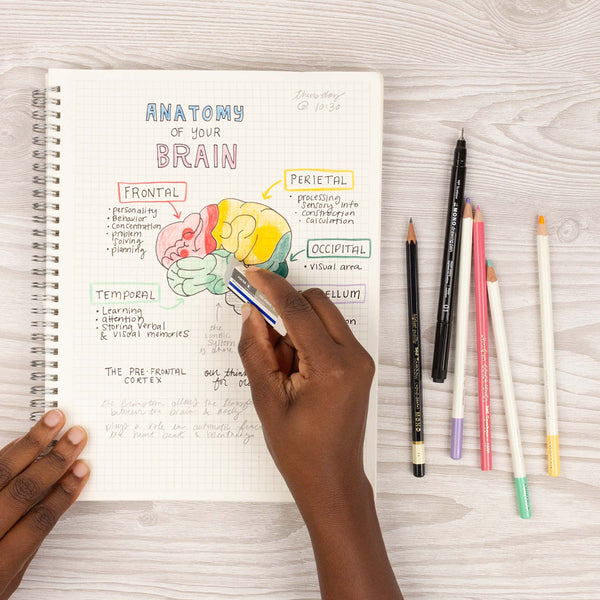 thursday
@ 10:30
ANATOMY
OF YOUR
BRAIN
FRONTAL
• personality
• Behavior
• Concentration
• problem
solving
• planning
PERIETAL
• processing
sensory info
• construction
calculation
OCCIPITAL
• VISUAL AREA
TEMPORAL
• Learning
• attention
• Storing verbal
& visual memories
the
limbic
System
is
THE PRE-FRONTAL
CORTEX
our
for
the brainstem allows the
between the brain & body
plays a role in automatic
the heart beat &
MONO